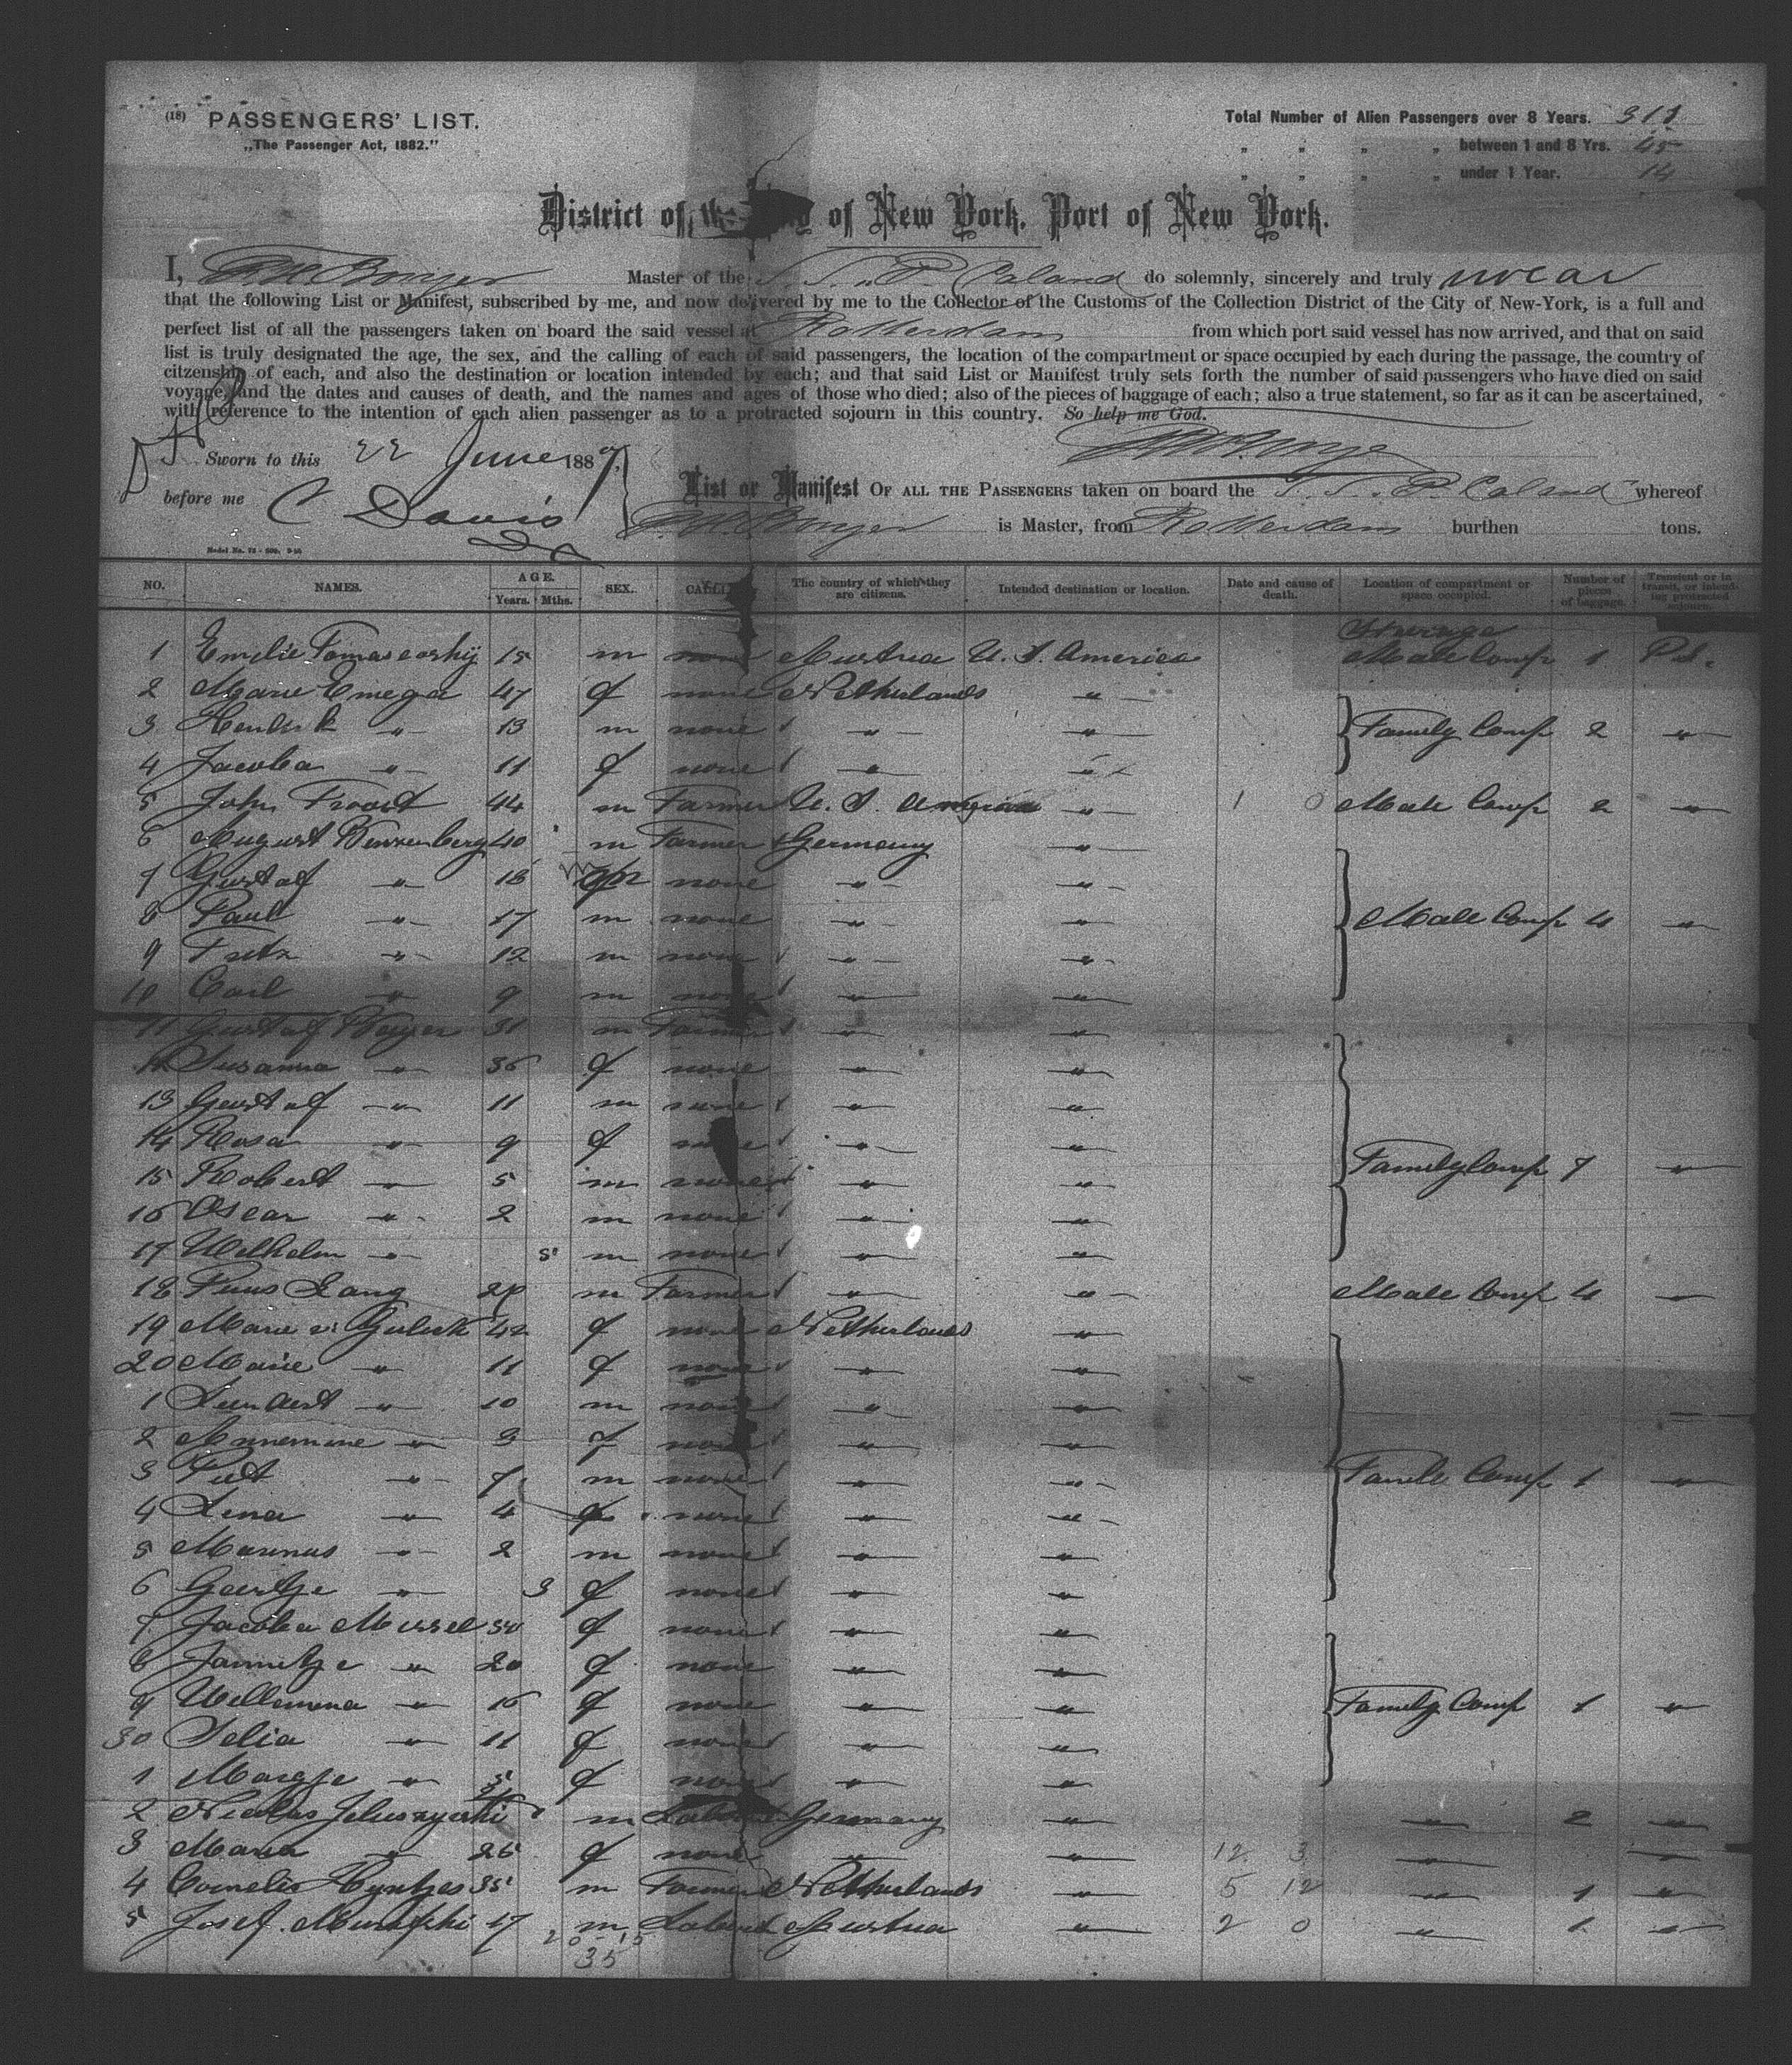 (18) PASSENGERS' LIST.
„The Passenger Act, 1882."
Total Number of Alien Passengers over 8 Years. 311
„ „ „ „ between 1 and 8 Yrs. 45
„ „ „ „ under 1 Year. 14
District of the City of New York. Port of New York.
I, Master of the S. S. „P. Caland do solemnly, sincerely and truly swear
that the following List or Manifest, subscribed by me, and now delivered by me to the Collector of the Customs of the Collection District of the City of New-York, is a full and
perfect list of all the passengers taken on board the said vessel at Rotterdam from which port said vessel has now arrived, and that on said
list is truly designated the age, the sex, and the calling of each of said passengers, the location of the compartment or space occupied by each during the passage, the country of
citzenship of each, and also the destination or location intended by each; and that said List or Manifest truly sets forth the number of said passengers who have died on said
voyage, and the dates and causes of death, and the names and ages of those who died; also of the pieces of baggage of each; also a true statement, so far as it can be ascertained,
with reference to the intention of each alien passenger as to a protracted sojourn in this country. So help me God.
Sworn to this 22 June 1887
before me C Davis
List or Manifest OF ALL THE PASSENGERS taken on board the S. S. „P. Caland whereof
is Master, from Rotterdam burthen tons.
NO. NAMES. AGE. Years. Mths. SEX. CALLING The country of which they are citizens. Intended destination or location. Date and cause of death. Location of compartment or space occupied. Number of pieces of baggage. Transient or in transit, or intending protracted sojourn.
Steerage
1 Emilie 15 m none Austria U. S. America Male Comp 1
2 Marie Emega 47 f none Netherlands „
3 Hendrik „ 13 m none „ „ Family Comp 2 „
4 Jacoba „ 11 f none „ „
5 John Troost 44 m Farmer U. S. America „ 1 0 Male Comp 2 „
6 August 40 m Farmer Germany „
7 Gustaf „ 18 m none „ „
8 Paul „ 17 m none „ „ Male Comp 4 „
9 Fritz „ 12 m none „ „
10 Carl „ 9 m none „ „
11 Gustaf 31 m Farmer „ „
12 Susanna „ 36 f none „ „
13 Gustaf „ 11 m none „ „
14 Rosa „ 9 f none „ „
15 Robert „ 5 m none „ „ Family Comp 7 „
16 Oscar „ 2 m none „ „
17 Wilhelm „ 5 m none „ „
18 Lang m Farmer „ „ Male Comp 4 „
19 Marie v. Gulick 42 f none Netherlands „
20 Marie „ 11 f none „ „
1 Leendert „ 10 m none „ „
2 Annemine „ 3 f none „ „
3 Piet „ 7 m none „ „ Famile Comp 1 „
4 Lena „ 4 f none „ „
5 Marinus „ 2 m none „ „
6 Geertje „ 3 f none „ „
7 Jacoba Mussel f none „ „
8 Jannetje „ 20 f none „ „
9 Willemina „ 16 f none „ „ Family Comp 1 „
30 Selia „ 11 f none „ „
1 Margje „ 5 f none „ „
2 Nicolas m Labourer Germany „ „ 2 „
3 Maria „ 26 f none „ 12 3 „ „
4 Cornelis 35 m Farmer Netherlands „ 5 12 „ 1 „
5 Josef 17 m Labourer Austria „ 2 0 „ 1 „
20-15
35